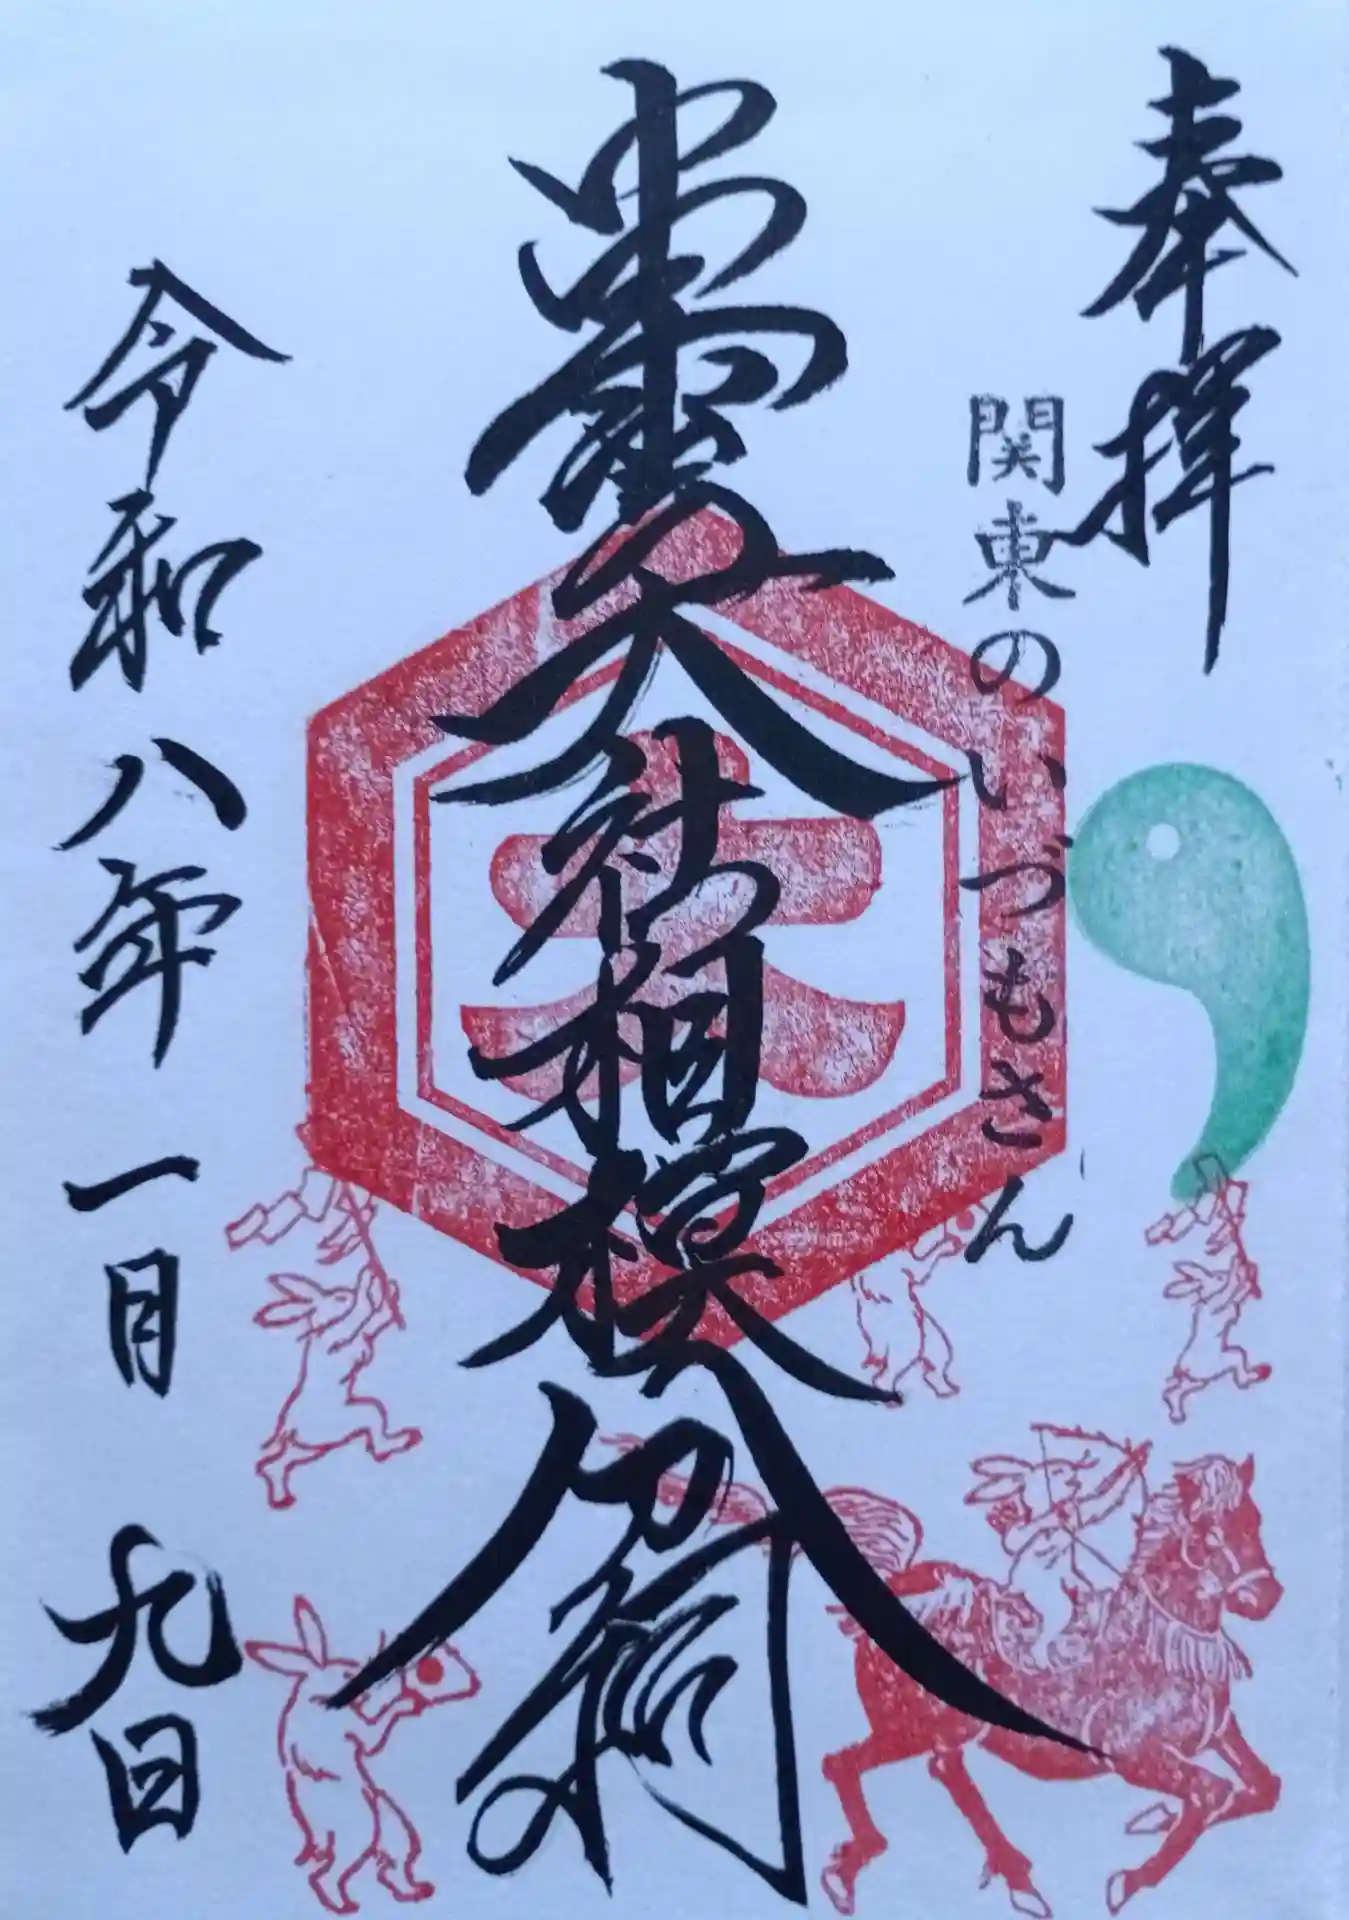 奉拝
関東のいづもさん
出雲大社相模分祠
令和八年一月九日
大